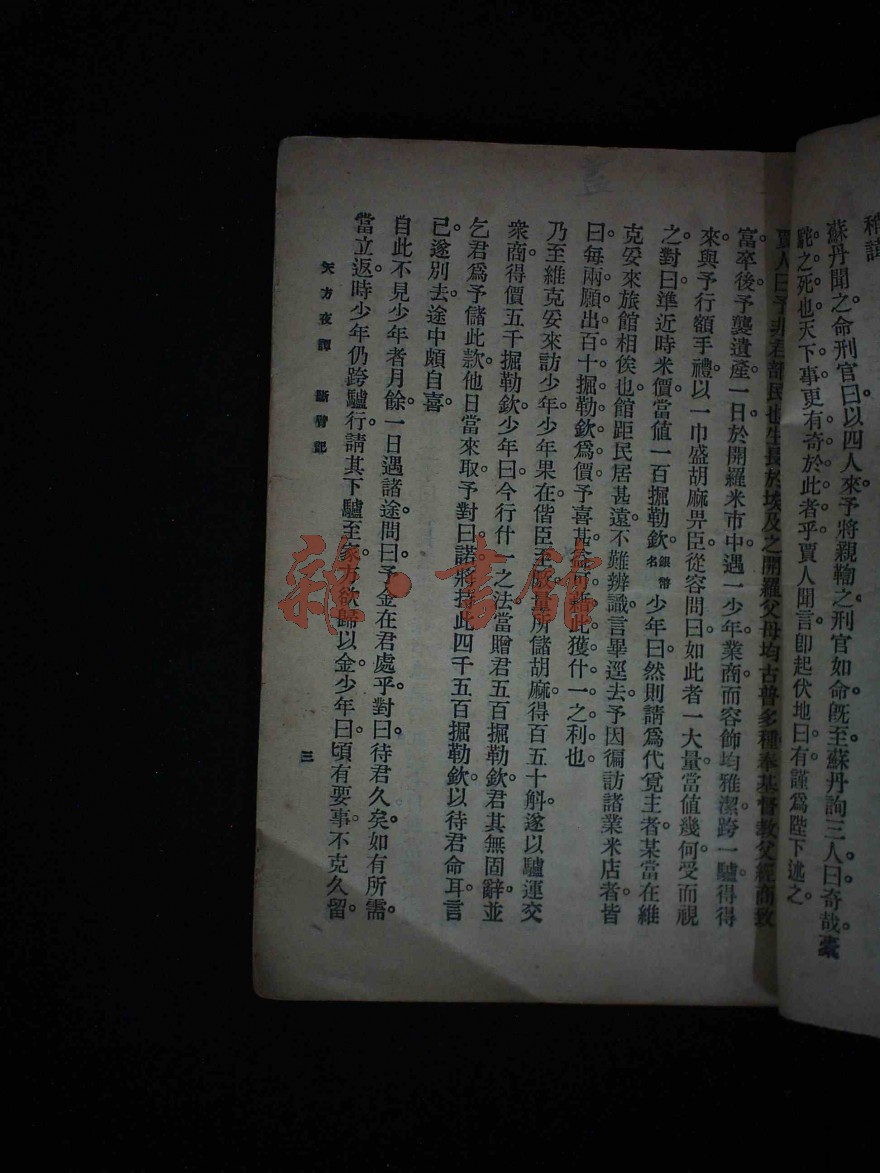 蘇丹聞之。命刑官曰。以四人來。予將親鞫之。刑官如命。旣至。蘇丹詢三人曰。奇哉。橐
駝之死也。天下事更有奇於此者乎。賈人聞言。卽起伏地曰。有。謹爲陛下述之。
賈人曰。予非君部民也。生長於埃及之開羅。父母均古普多種。奉基督敎。父經商致
富。卒後。予襲遺產。一日。於開羅米市中。遇一少年。業商。而容飾均雅潔。跨一驢。得得
來。與予行額手禮。以一巾盛胡麻畀臣。從容問曰。如此者一大量。當值幾何。受而視
之。對曰。準近時米價。當值一百掘勒欽。銀幣名 少年曰。然則請爲代覓主者。某當在維
克妥來旅館相俟也。館距民居甚遠。不難辨識。言畢逕去。予因徧訪諸業米店者。皆
曰每兩願出百十掘勒欽爲價。予喜甚。蓋可藉此獲什一之利也
乃至維克妥來。訪少年。少年果在。偕臣至
量所儲胡麻。得百五十斛。遂以驢運交
衆商。得價五千掘勒欽。少年曰。今行什一之法。當贈君五百掘勒欽。君其無固辭。並
乞君爲予儲此款。他日當來取。予對曰。諾。將持此四千五百掘勒欽以待君命耳。言
已。遂別去。途中頗自喜。
自此不見少年者月餘。一日遇諸途。問曰。予金在君處乎。對曰。待君久矣。如有所需。
當立返。時少年仍跨驢行。請其下驢至家。方欲歸以金。少年曰。頃有要事。不克久留。
天方夜譚 斷臂記
三
雜·書館